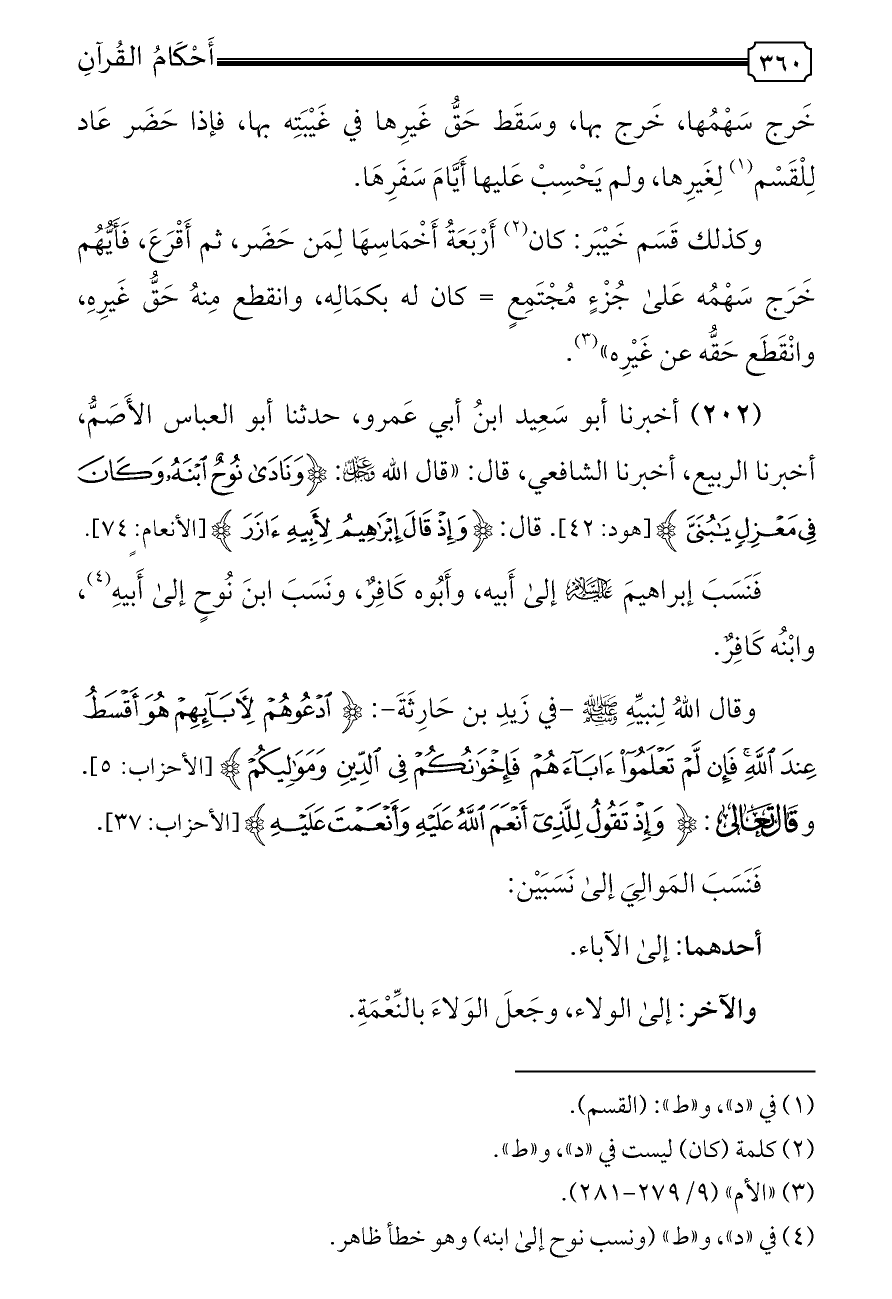 ٣٦٠ أَحْكَامُ القُرآنِ
خَرج سَهْمُها، خَرج بها، وسَقَط حَقُّ غَيرِها في غَيْبَتِه بها، فإذا حَضَر عَاد
لِلْقَسْم(١) لِغَيرِها، ولم يَحْسِبْ عَليها أَيَّامَ سَفَرِهَا.
وكذلك قَسَم خَيْبَر: كان(٢) أَرْبَعَةُ أَخْمَاسِهَا لِمَن حَضَر، ثم أَقْرَعَ، فَأَيُّهُم
خَرَج سَهْمُه عَلىٰ جُزْءٍ مُجْتَمِعٍ = كان له بكمَالِه، وانقطع مِنهُ حَقُّ غَيرِهِ،
وانْقَطَع حَقُّه عن غَيْرِه»(٣).
(٢٠٢) أخبرنا أبو سَعِيد ابنُ أبي عَمرو، حدثنا أبو العباس الأَصَمُّ،
أخبرنا الربيع، أخبرنا الشافعي، قال: «قال الله عز وجل: ﴿وَنَادَىٰ نُوحٌ ٱبْنَهُۥ وَكَانَ
فِى مَعْزِلٍ يَٰبُنَىَّ﴾ [هود: ٤٢]. قال: ﴿وَإِذْ قَالَ إِبْرَٰهِيمُ لِأَبِيهِ ءَازَرَ﴾ [الأنعام: ٧٤].
فَنَسَبَ إبراهيمَ عليه السلام إلىٰ أَبيه، وأَبُوه كَافِرٌ، ونَسَبَ ابنَ نُوحٍ إلىٰ أَبيهِ(٤)،
وابْنُه كَافِرٌ.
وقال اللهُ لِنبيِّهِ ﷺ -في زَيدِ بن حَارِثَةَ-: ﴿ٱدْعُوهُمْ لِأٓبَآئِهِمْ هُوَ أَقْسَطُ
عِندَ ٱللَّهِ ۚ فَإِن لَّمْ تَعْلَمُوٓا۟ ءَابَآءَهُمْ فَإِخْوَٰنُكُمْ فِى ٱلدِّينِ وَمَوَٰلِيكُمْ﴾ [الأحزاب: ٥].
و قَالَ تَعَالَىٰ: ﴿وَإِذْ تَقُولُ لِلَّذِىٓ أَنْعَمَ ٱللَّهُ عَلَيْهِ وَأَنْعَمْتَ عَلَيْهِ﴾ [الأحزاب: ٣٧].
فَنَسَبَ المَوالِيَ إلىٰ نَسَبَيْن:
أحدهما: إلىٰ الآباء.
والآخر: إلىٰ الولاء، وجَعلَ الوَلاءَ بالنِّعْمَةِ.
(١) في «د»، و«ط»: (القسم).
(٢) كلمة (كان) ليست في «د»، و«ط».
(٣) «الأم» (٩/ ٢٧٩-٢٨١).
(٤) في «د»، و«ط» (ونسب نوح إلىٰ ابنه) وهو خطأ ظاهر.